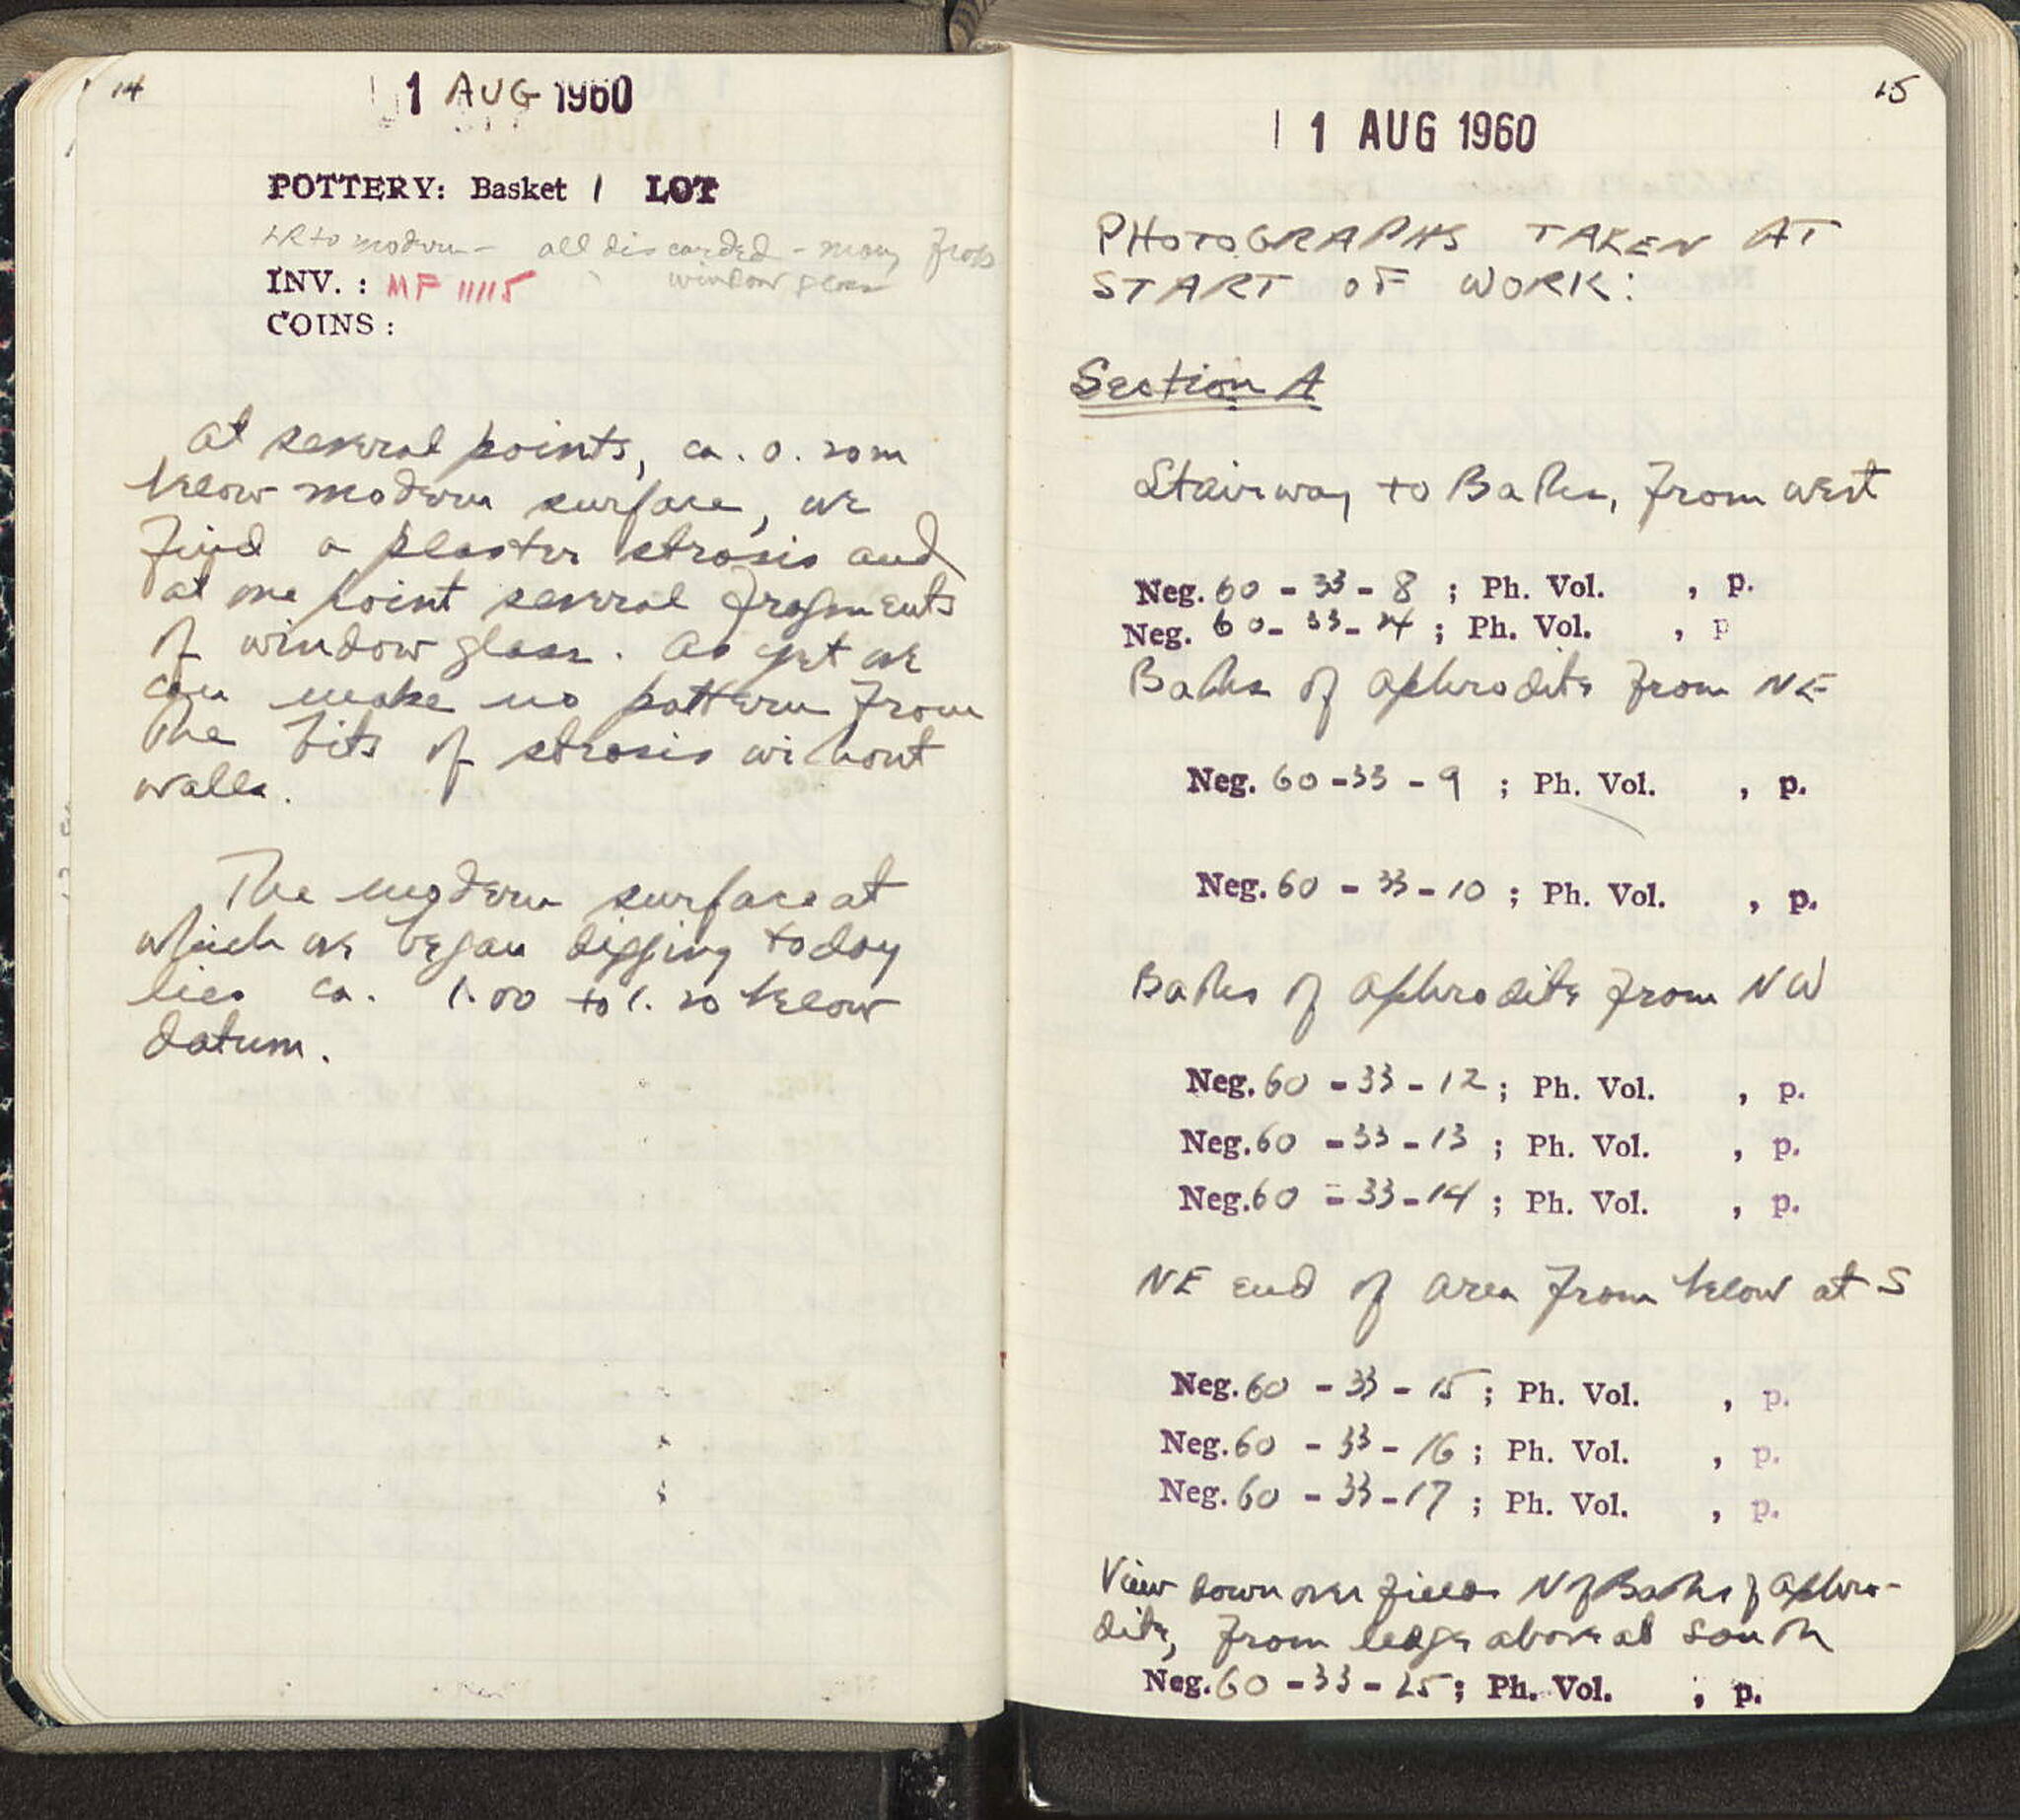 14
1 AUG 1960
POTTERY: Basket 1 LOT
LR to modern - all discarded - many frags
window glass
INV. : MF 11115
COINS :
At several points, ca. 0.20m
below modern surface, we
find a plaster strosis and
at one point several fragments
of window glass. As yet we
can make no pattern from
the bits of strosis without
walls.
The modern surface at
which we began digging today
lies ca. 1.00 to 1.20 below
datum.
15
1 AUG 1960
PHOTOGRAPHS TAKEN AT
START OF WORK:
Section A
Stairway to Baths, from west
Neg. 60 - 33 - 8 ; Ph. Vol. , p.
Neg. 60 - 33 - 24 ; Ph. Vol. , p
Baths of Aphrodite from NE
Neg. 60 - 33 - 9 ; Ph. Vol. , p.
Neg. 60 - 33 - 10 ; Ph. Vol. , p.
Baths of Aphrodite from NW
Neg. 60 - 33 - 12 ; Ph. Vol. , p.
Neg. 60 - 33 - 13 ; Ph. Vol. , p.
Neg. 60 - 33 - 14 ; Ph. Vol. , p.
NE end of area from below at S
Neg. 60 - 33 - 15 ; Ph. Vol. , p.
Neg. 60 - 33 - 16 ; Ph. Vol. , p.
Neg. 60 - 33 - 17 ; Ph. Vol. , p.
View down over fields N of Baths of Aphro-
dite, from ledge above at south
Neg. 60 - 33 - 25 ; Ph. Vol. , p.